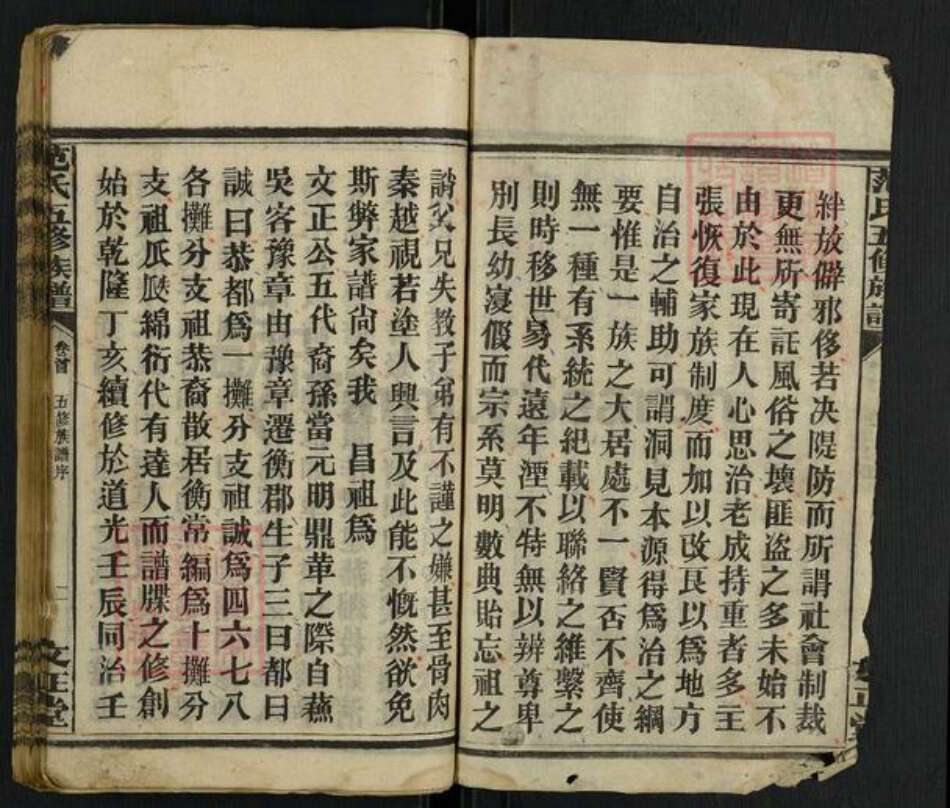 范氏五修族譜
絆放僻邪侈若决隄防而所謂社會制裁
更無所寄託風俗之壞匪盜之多未始不
由於此現在人心思治老成持重者多主
張恢復家族制度而加以改良以為地方
自治之輔助可謂洞見本源得為治之綱
要惟是一族之大居處不一賢否不齊使
無一種有系統之紀載以聯絡之維繫之
則時移世易代遠年湮不特無以辨尊卑
別長幼寖假而宗系莫明數典貽忘祖之
誚父兄失教子弟有不謹之嫌甚至骨肉
秦越視若塗人興言及此能不慨然欲免
斯弊家譜尙矣我 昌祖爲
文正公五代裔孫當元明鼎革之際自蘇
吳客豫章由豫章遷衡郡生子三曰都曰
誠曰恭都爲一攤分支祖誠爲四六七八
各攤分支祖恭裔散居衡常編爲十攤分
支祖瓜瓞綿衍代有達人而譜牒之修創
始於乾隆丁亥續修於道光壬辰同治壬
范氏五修族譜
卷首
五修族譜序
一
文正堂